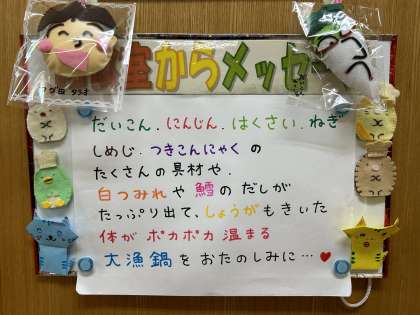 からメッセ
だいこん.にんじん.はくさい.ねぎ
しめじ.つきこんにゃくの
たくさんの具材や.
白つみれや鱈のだしが
たっぷり出て、しょうがもきいた
体がポカポカ温まる
大漁鍋をおたのしみに…♥